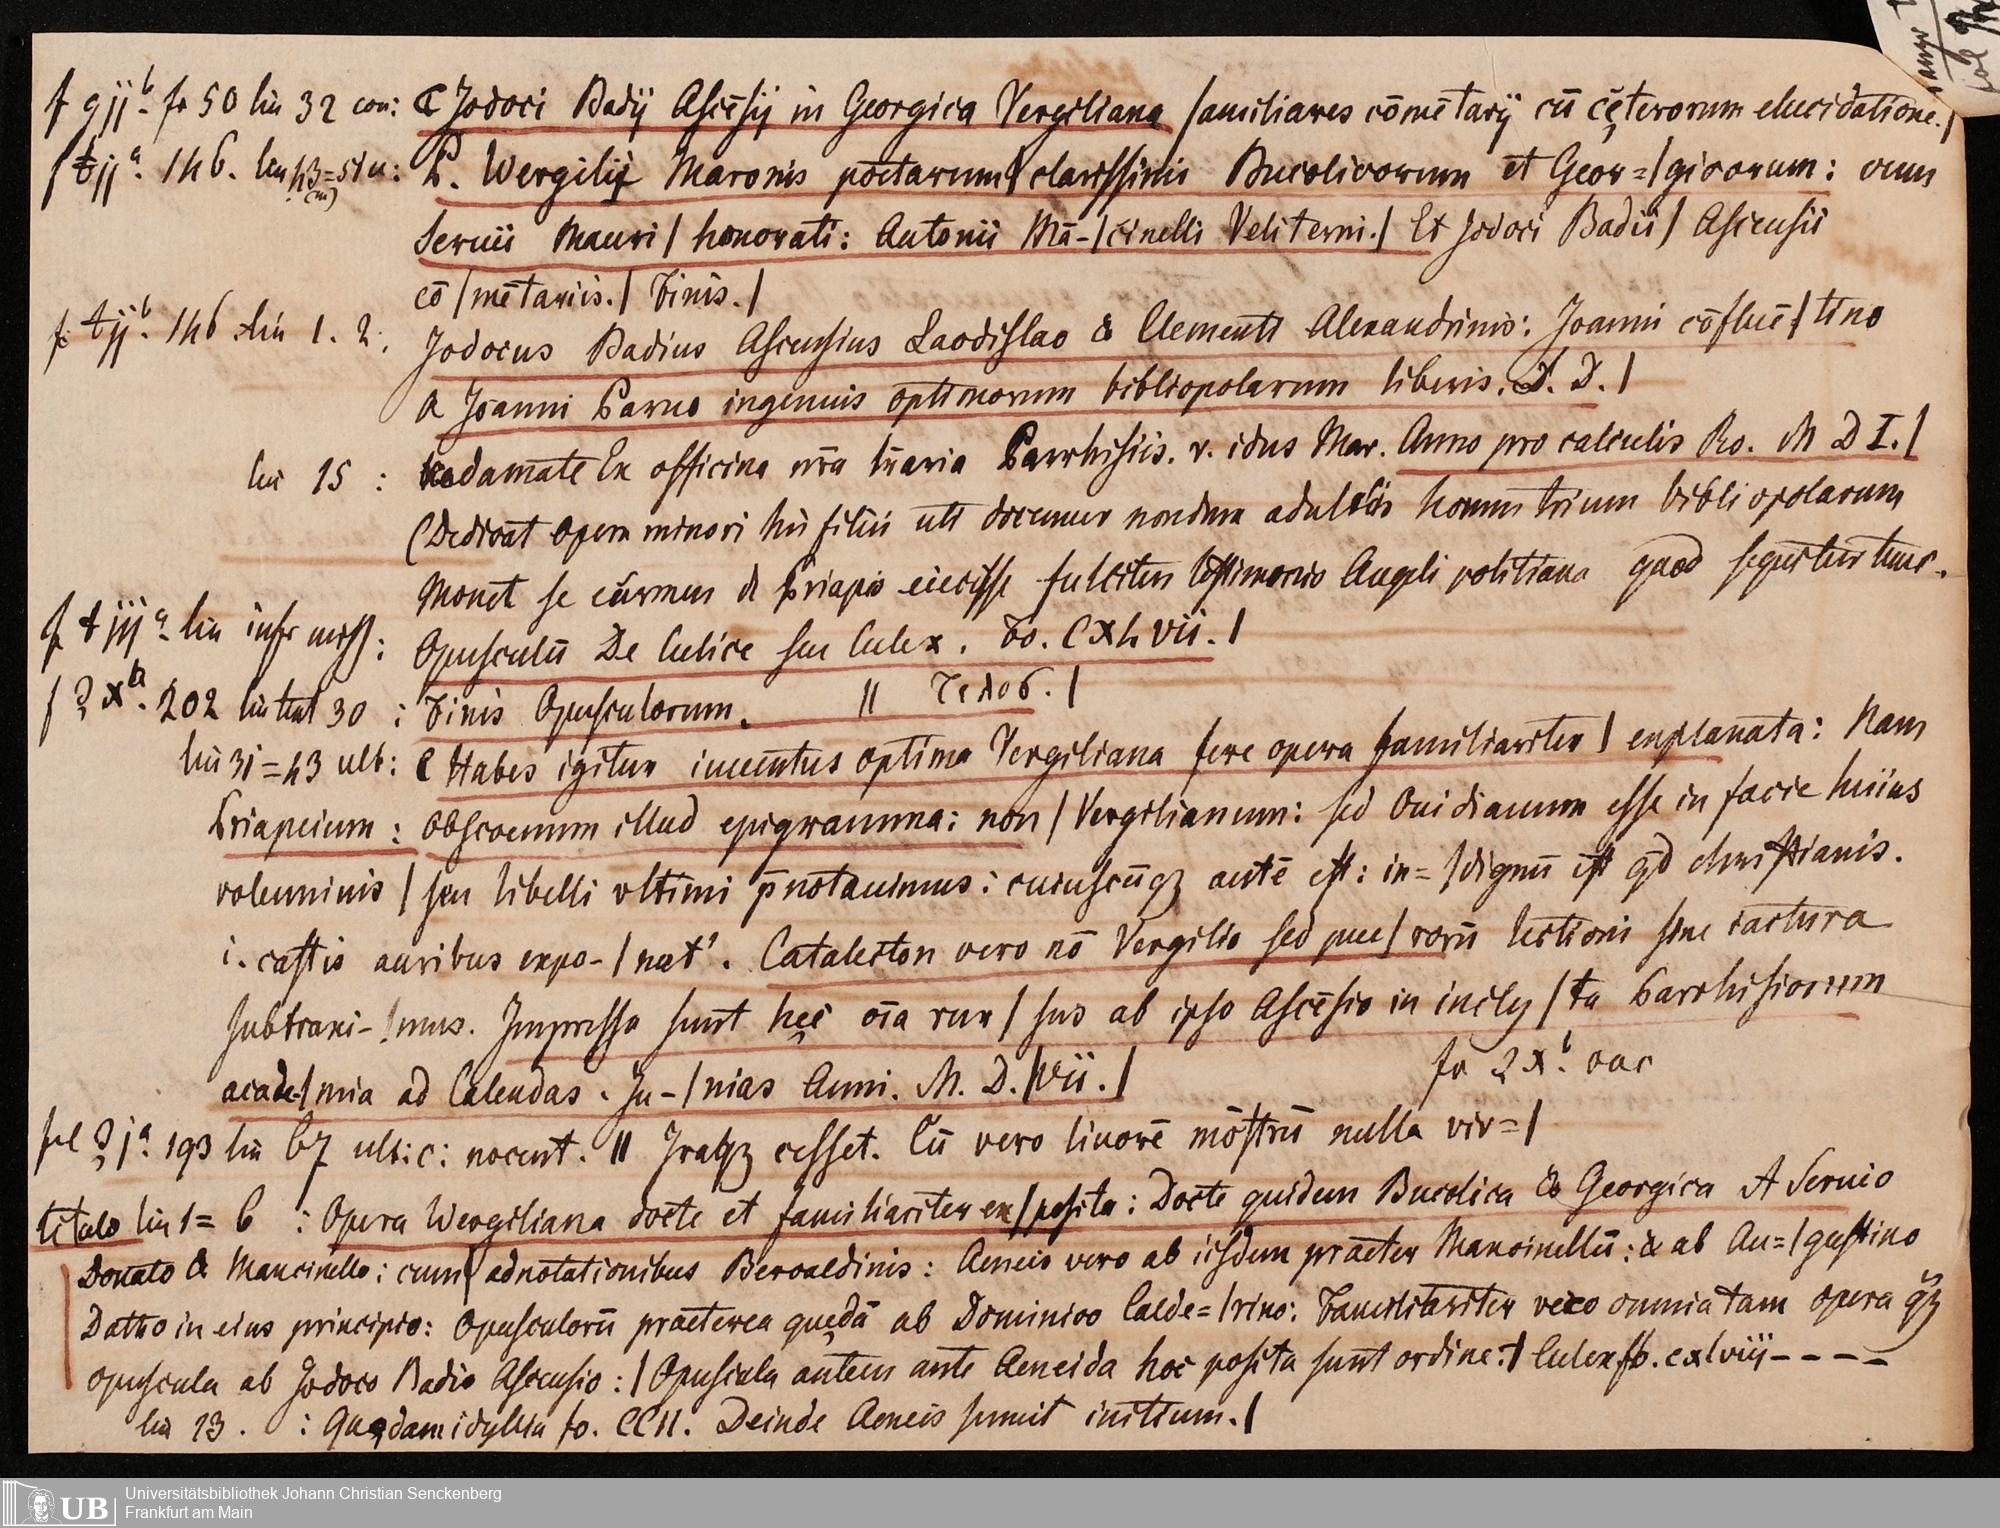 f gijᵇ. fo 50 lin 32 con: ⸿ Jodoci Badij Ascēsij in Georgica Vergiliana /amiliares cōmētarij cū cęterorum elucidatione./
f tijᵃ. 146. lin 43=51 u: P. Wergilij Maronis poetarum/ clarissimi Bucolicorum et Geor=/gicorum: cum
(m)
Seruii Mauri/ honorati: Antonii Mā-/cinelli Veliterni./ Et Jodoci Badii/ Ascensii
cō/mētariis./ Finis./
f. tijᵇ. 146 lin 1. 2: Jodocus Badius Ascensius Laodislao & Clementi Alexandrinis: Joanni cōfluē/tino
& Joanni Paruo ingenuis optimorum bibliopolarum liberis. S. D./
lin 15 : Ex officina nr̄a lr̄aria Parrhisiis. v. idus Mar. Anno pro calculis Ro. M D I./
(Dedicat opera minori his filiis uti docemur nondum adultis horum trium bibliopolarum
Monet se carmen d Priapo eiecisse fulcitur testimonio Angeli politiana quod sequitur tunc.
f tiijᵃ lin infr : Opusculū De Culice seu Culex. Fo. CXLVii./
f xᵃ. 202 lin 30 : Finis Opusculorum. || Τελοσ./
lin 31=43 ult: ⸿ Habes igitur iuuentus optima Vergiliana fere opera familiariter/ explanata: Nam
Priapeium: obscoenum illud epigramma: non/ Vergilianum: sed Ouidianum esse in facie huius
voluminis/ seu libelli vltimi p̄notauimus: cuiuscūqʒ autē est: in=/dignū est qd̄ christianis.
i. castis auribus expo-/nat'. Catalecton vero nō Vergilio sed pue/rorū lectioni sine iactura
subtraxi-/mus. Impressa sunt hęc oīa rur/sus ab ipso Ascēsio in incly/ta Parrhisiorum
acade-/mia ad Calendas. Ju-/nias Anni. M. D./Vii./ fo xᵇ. vac
fol jᵃ 193 lin 67 ult: c: nocent. || Iratqʒ cesset. Cū vero liuorē mōstrū nulla vir=/
titulo lin 1=6 : Opera Wergiliana docte et familiariter ex/posita: Docte quidem Bucolica & Georgica A Seruio
Donato & Mancinello: cum/ adnotationibus Beroaldinis: Aeneis vero ab iisdem praeter Mancinellū: & ab Au=/gustino
Datho in eius principio: Opusculorū praeterea quędā ab Dominico Calde=/rino: Familiariter vero omnia tam opera qʒ
opuscula ab Jodoco Badio Ascensio:/ Opuscula autem ante Aeneida hoc posita sunt ordine:/ Culex fo. cxlviij----
lin 13. : Quędam idyllia fo. CCII. Deinde Aeneis sumit initium./
UB Universitätsbibliothek Johann Christian Senckenberg
Frankfurt am Main